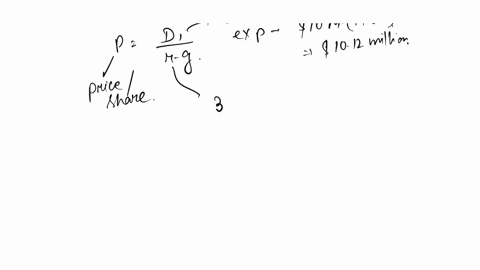 P = D1 / r-g. exp -
⇒ $10.12 million
price share.
3